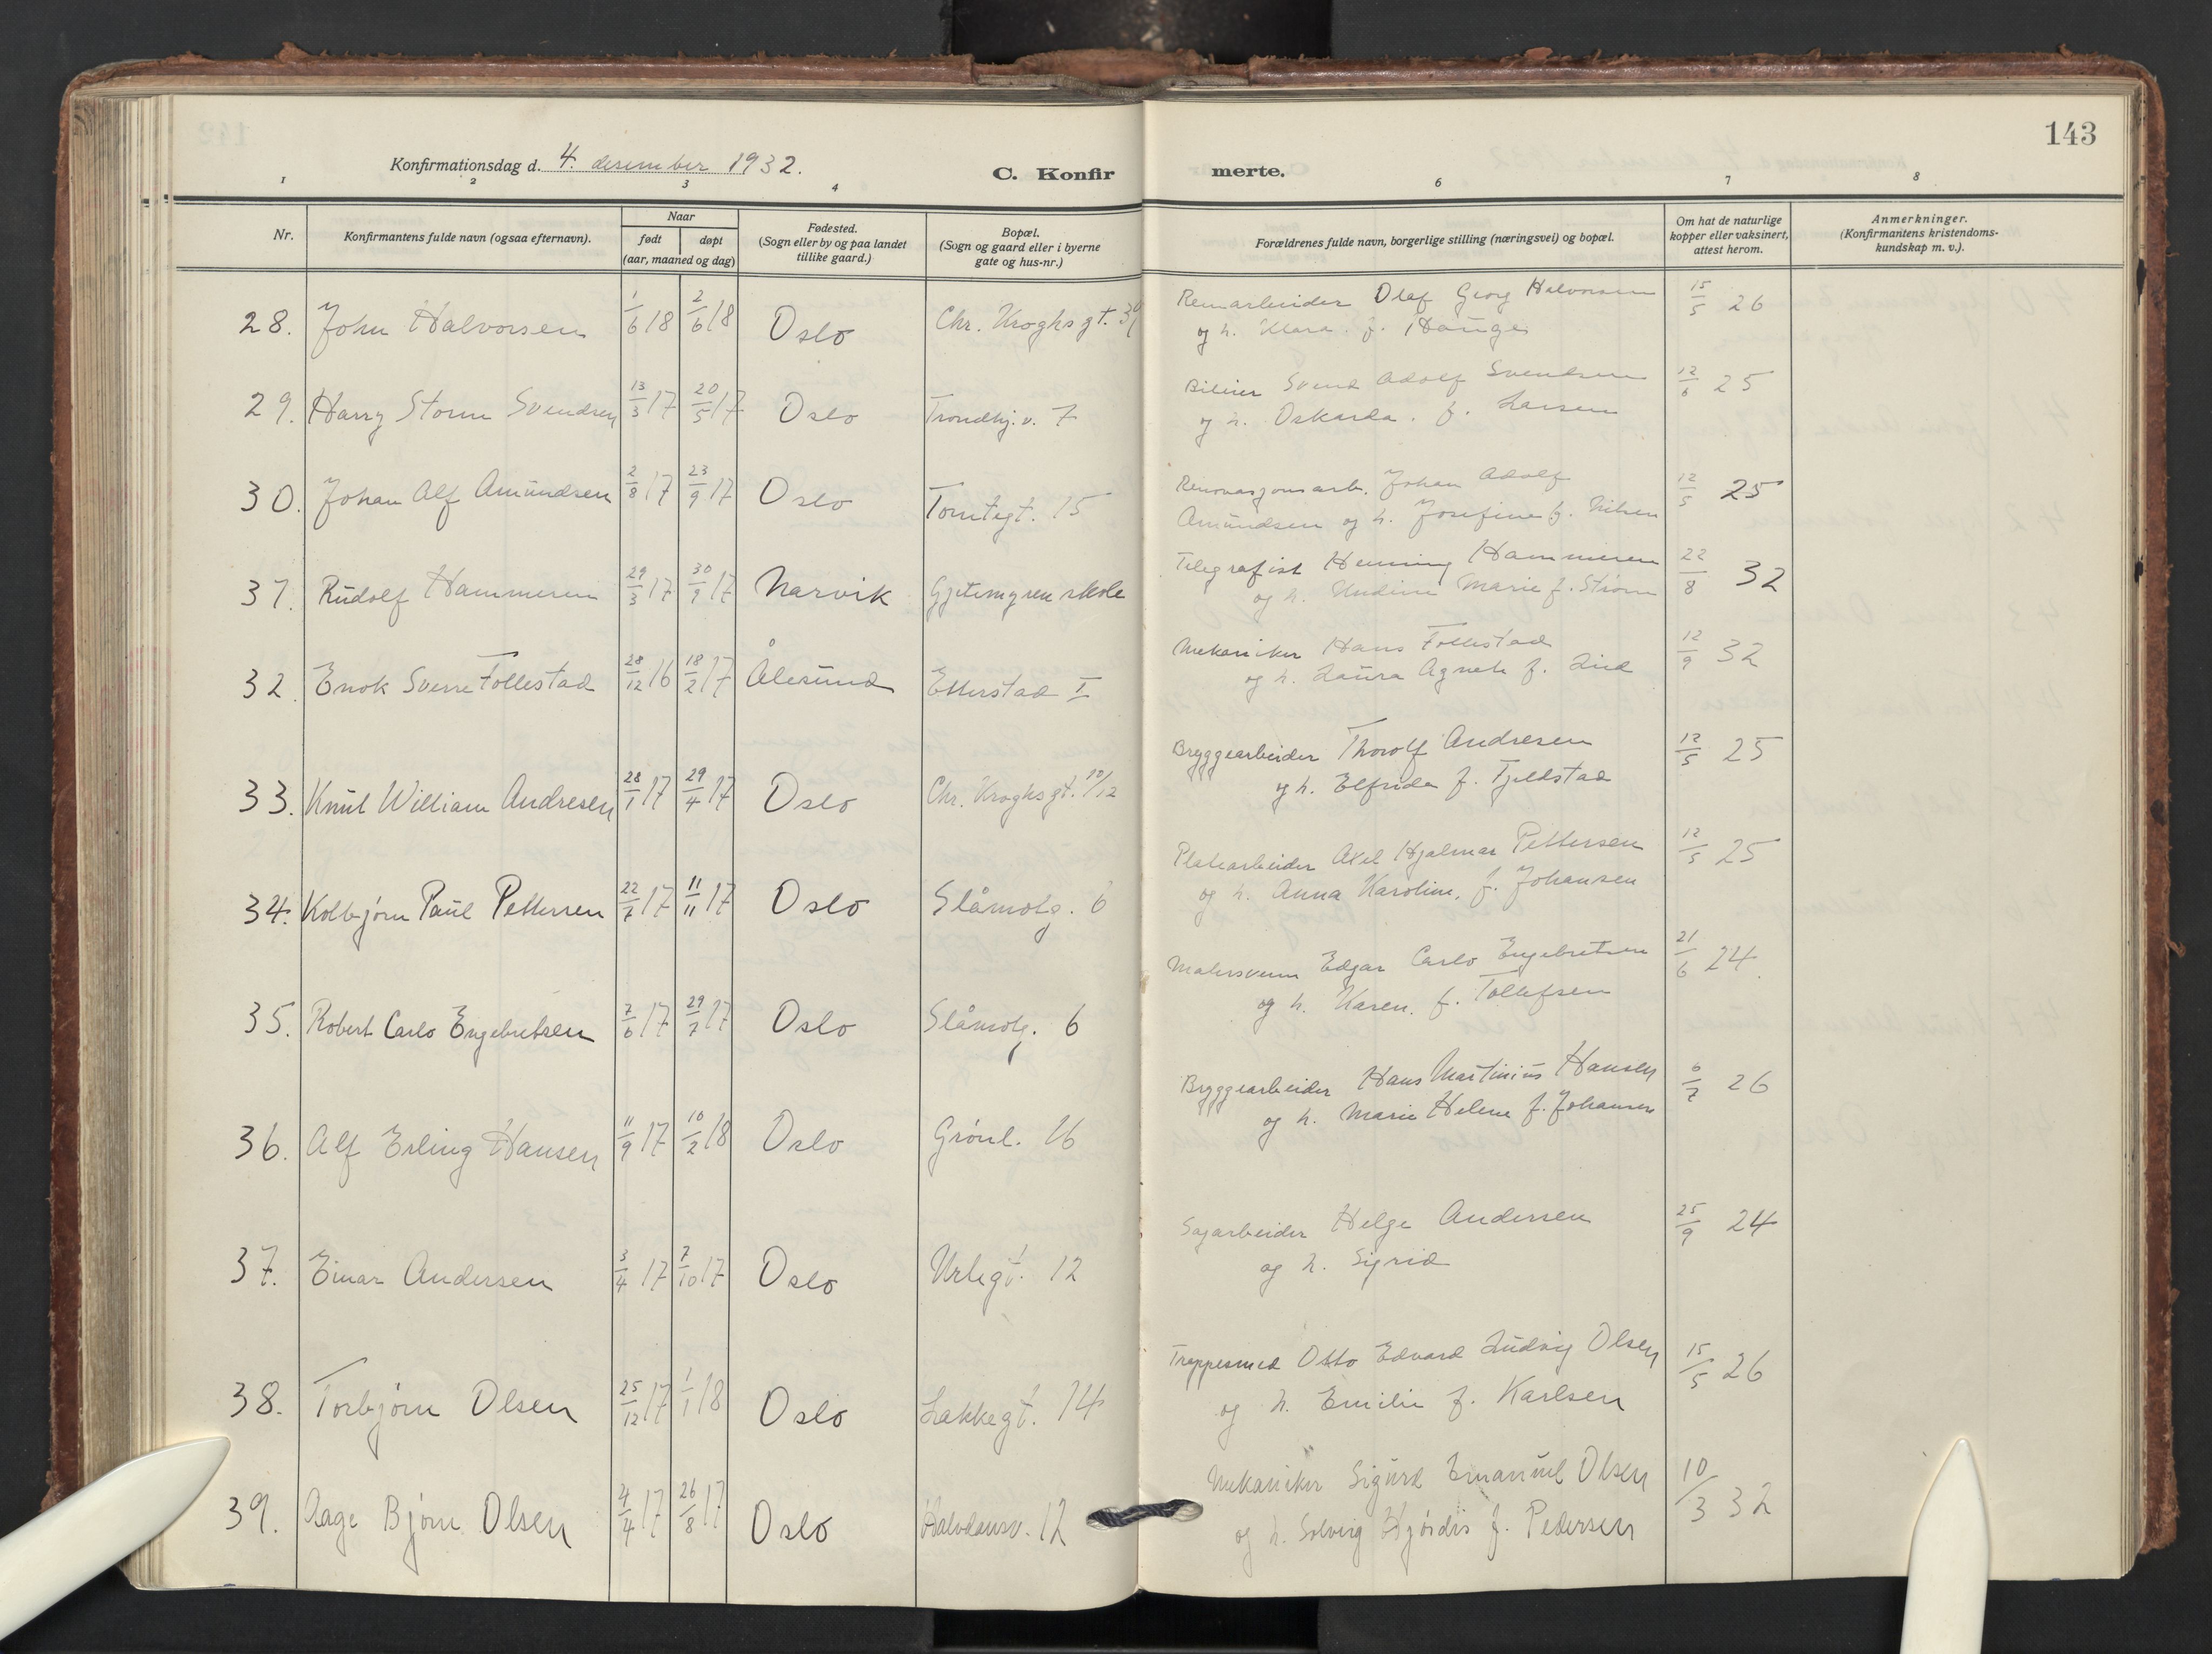 143
Konfirmationsdag d. 4. desember 1932.
C. Konfirmerte.
1 2 3 4 6 7 8
Nr.
Konfirmantens fulde navn (ogsaa efternavn).
Naar
født døpt
(aar, maaned og dag)
Fødested.
(Sogn eller by og paa landet
tillike gaard.)
Bopæl.
(Sogn og gaard eller i byerne
gate og hus-nr.)
Forældrenes fulde navn, borgerlige stilling (næringsvei) og bopæl.
Om hat de naturlige
kopper eller vaksinert,
attest herom.
Anmerkninger.
(Konfirmantens kristendoms-
kundskap m. v.).
28. John Halvorsen 1/6 18 2/6 18 Oslo Chr. Kroghsgt. Olaf Georg Halvorsen 15/5 26
og h. Klara. f. Hauge
29. Harry Storm Svendsen 13/3 17 20/5 17 Oslo Trondhj. v. 7 Bileier Svend Adolf Svendsen 12/6 25
og h. Oskarda. f. Larsen
30. Johan Alf Amundsen 2/8 17 23/9 17 Oslo Tomtegt. 15 Renovasjonsarb. Johan Adolf 12/5 25
Amundsen og h. Josefine f. Nilsen
31. Rudolf Hammeren 29/3 17 30/9 17 Narvik Gjetemyren skole Telegrafist Henning Hammeren 22/8 32
og h. Undine Marie f. Strøm
32. Enok Sverre Follestad 28/12 16 18/2 17 Ålesund Etterstad I Mekaniker Hans Follestad 12/9 32
og h. Laura Agnete f. Lid
33. Knut William Andresen 28/1 17 29/4 17 Oslo Chr. Kroghsgt. 10/12 Bryggearbeider Thorolf Andresen 12/5 25
og h. Elfrida f. Tjeldstad
34. Kolbjørn Paul Pettersen 22/7 17 11/11 17 Oslo Slåmotg. 6 Platearbeider Axel Hjalmar Pettersen 12/5 25
og h. Anna Karoline, f. Johansen
35. Robert Carlo Engebretsen 7/6 17 29/7 17 Oslo Slåmotg. 6 Malersvenn Edgar Carlo Engebretsen 21/6 24.
og h. Karen. f. Tollefsen
36. Alf Erling Hansen 11/9 17 10/2 18 Oslo Grønl. 26 Bryggearbeider Hans Martinius Hansen 6/7 26
og h. Marie Helene f. Johansen
37. Einar Andersen 3/4 17 7/10 17 Oslo Urtegt. 12 Sagarbeider Helge Andersen 25/9 24
og h. Sigrid
38. Torbjørn Olsen 25/12 17 1/1 18 Oslo Lakkegt. 14 Trappesmed Otto Edvard Ludvig Olsen 15/5 26
og h. Emilie f. Karlsen
39. Aage Bjørn Olsen 4/4 17 26/8 17 Oslo Halvdansv. 12 Mekaniker Sigurd Emanuel Olsen 10/3 32
og h. Solveig Hjørdis f. Pedersen